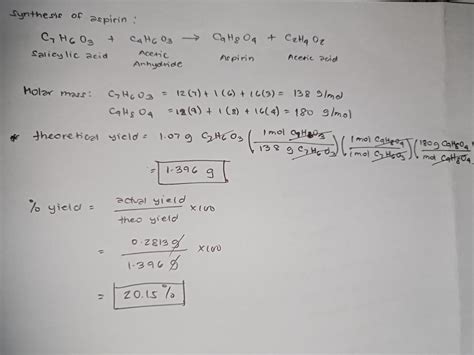 Synthesis of aspirin :
C7H6O3 + C4H6O3 → C9H8O4 + C2H4O2
Salicylic acid Acetic Anhydride Aspirin Acetic acid
Molar mass: C7H6O3 = 12(7) + 1(6) + 16(3) = 138 g/mol
C9H8O4 = 12(9) + 1(8) + 16(4) = 180 g/mol
* theoretical yield = 1.07 g C7H6O3 (1 mol C7H6O3 / 138 g C7H6O3) (1 mol C9H8O4 / 1 mol C7H6O3) (180 g C9H8O4 / mol C9H8O4
= 1.396 g
% yield = actual yield / theo yield × 100
= 0.2813 g / 1.396 g × 100
= 20.15 %